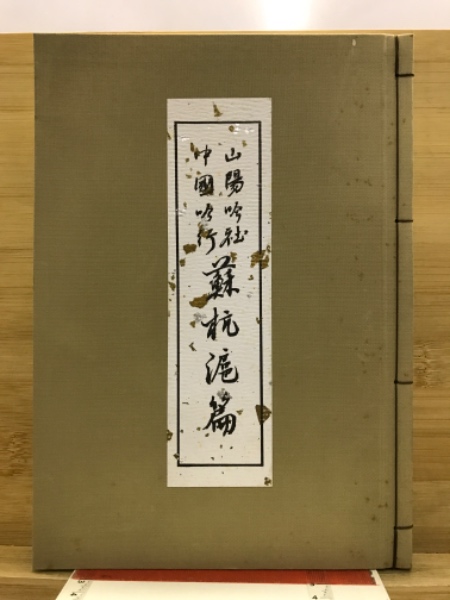 山陽吟社
中國吟行
蘇杭滬篇